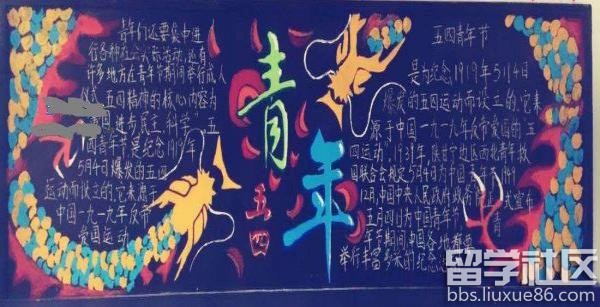 青年们还要集中进
行各种社会实践活动,还有
许多地方在青年节期间举行成人
仪式。五四精神的核心内容为
"爱国、进步、民主、科学"。五
四青年节是纪念1919年
5月4日爆发的五四
运动而设立的,它来源于
中国一九一九年反帝
爱国运动
青年
五四
五四青年节
是为纪念1919年5月4日
爆发的五四运动而设立的,它来
源于中国一九一九年反帝爱国的五
四运动,1939年,陕甘宁边区西北青年救
国联合会规定5月4日为中国
12月,中国中央人民政府政务
式宣布
五月四日为中国青年节
青年节期间中国各地都要
举行丰富多采的纪念
留学社区
bbs.liuxue86.com